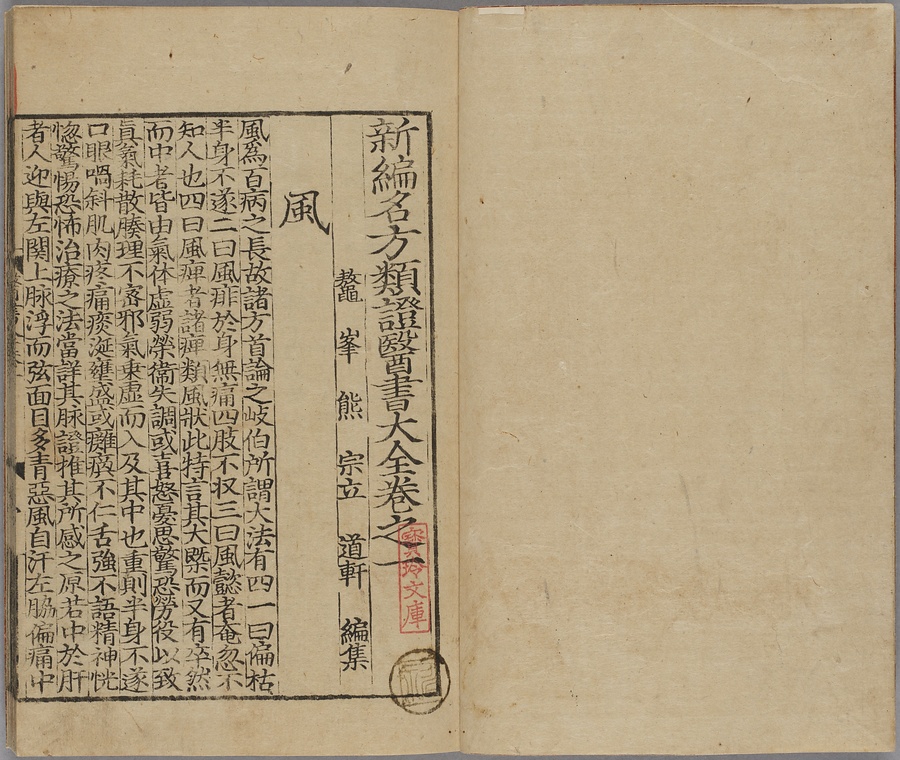 新編名方類證醫書大全卷之一
鼇峯 熊 宗立 道軒 編集
風
風爲百病之長故諸方首論之岐伯所謂大法有四一曰偏枯
半身不遂二曰風痱於身無痛四肢不収三曰風懿者奄忽不
知人也四曰風痺者諸痺類風狀此特言其大槩而又有卒然
而中者皆由氣体虛弱榮衞失調或喜怒憂思驚恐勞役以致
眞氣耗散腠理不密邪氣乗虛而入及其中也重則半身不遂
口眼喎斜肌肉疼痛痰涎壅盛或癱瘓不仁舌強不語精神恍
惚驚惕恐怖治療之法當詳其脉證推其所感之原若中於肝
者人迎與左関上脉浮而弦面目多青惡風自汗左脇偏痛中
寳玲文庫